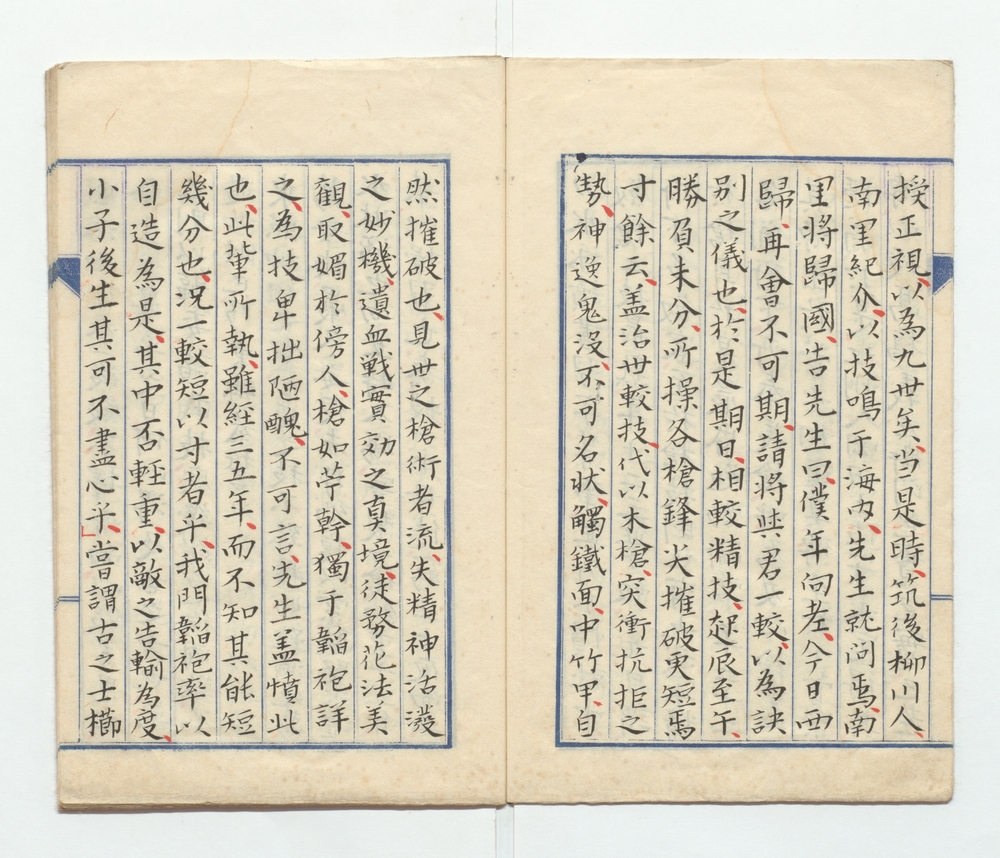 授正視、以為九世矣、当是時、筑後柳川人、
南里紀介、以技鳴于海内、先生就问焉、南
里将帰國、告先生曰、僕年向老、今日西
歸、再會不可期、請将與君一較、以為訣
别之儀也、於是期日、相較精技、起辰至午、
勝負未分、所操各槍鋒尖摧破更短焉
寸餘云、盖治世較技、代以木槍、突衝抗拒之
勢、神逸鬼没、不可名状、觸鐵面、中竹甲、自
然摧破也、見世之槍術者流、失精神活潑
之妙機、遺血戦實効之真境、徒務花法美
觀、取媚於傍人、槍如苧幹、獨于韜袍詳
之、為技卑拙陋醜、不可言、先生盖憤此
也、此輩所執、雖経三五年、而不知其能短
幾分也、况一較短以寸者乎、我門韜袍率以
自造為是、其中否輕重、以敵之告輸為度、
小子後生其可不盡心乎、嘗謂古之士櫛